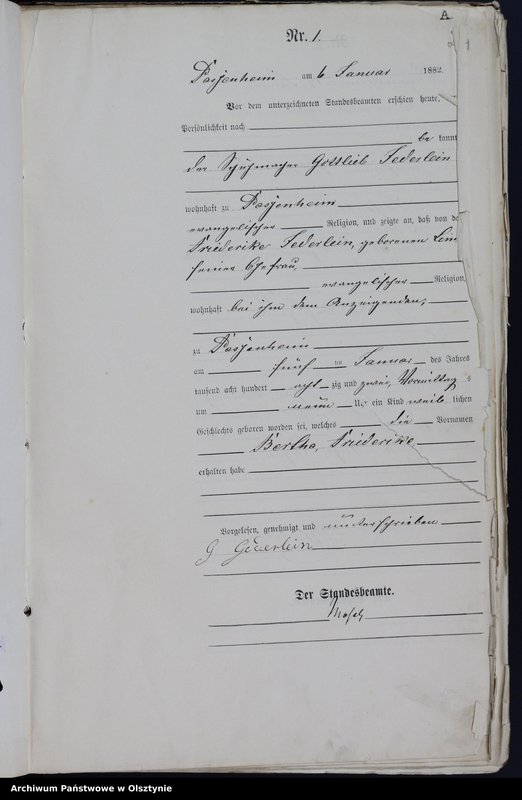 A
Nr. 1.
1
Passenheim am 6 Januar 1882.
Vor dem unterzeichneten Standesbeamten erschien heute,
Persönlichkeit nach
be kannt
der Schuhmacher Gottlieb Federlein
wohnhaft zu Passenheim
evangelischer Religion, und zeigte an, daß von de
Friederike Federlein, geborenen
seiner Ehefrau,
evangelischer Religion,
wohnhaft bei ihm dem Anzeigenden,
zu Passenheim
am fünf ten Januar des Jahres
tausend acht hundert acht zig und zwei, Vormittag s
um neun Uhr ein Kind weib lichen
Geschlechts geboren worden sei, welches die Vornamen
Bertha, Friederike
erhalten habe
Vorgelesen, genehmigt und unterschrieben
G
Der Standesbeamte.
Archiwum Państwowe w Olsztynie